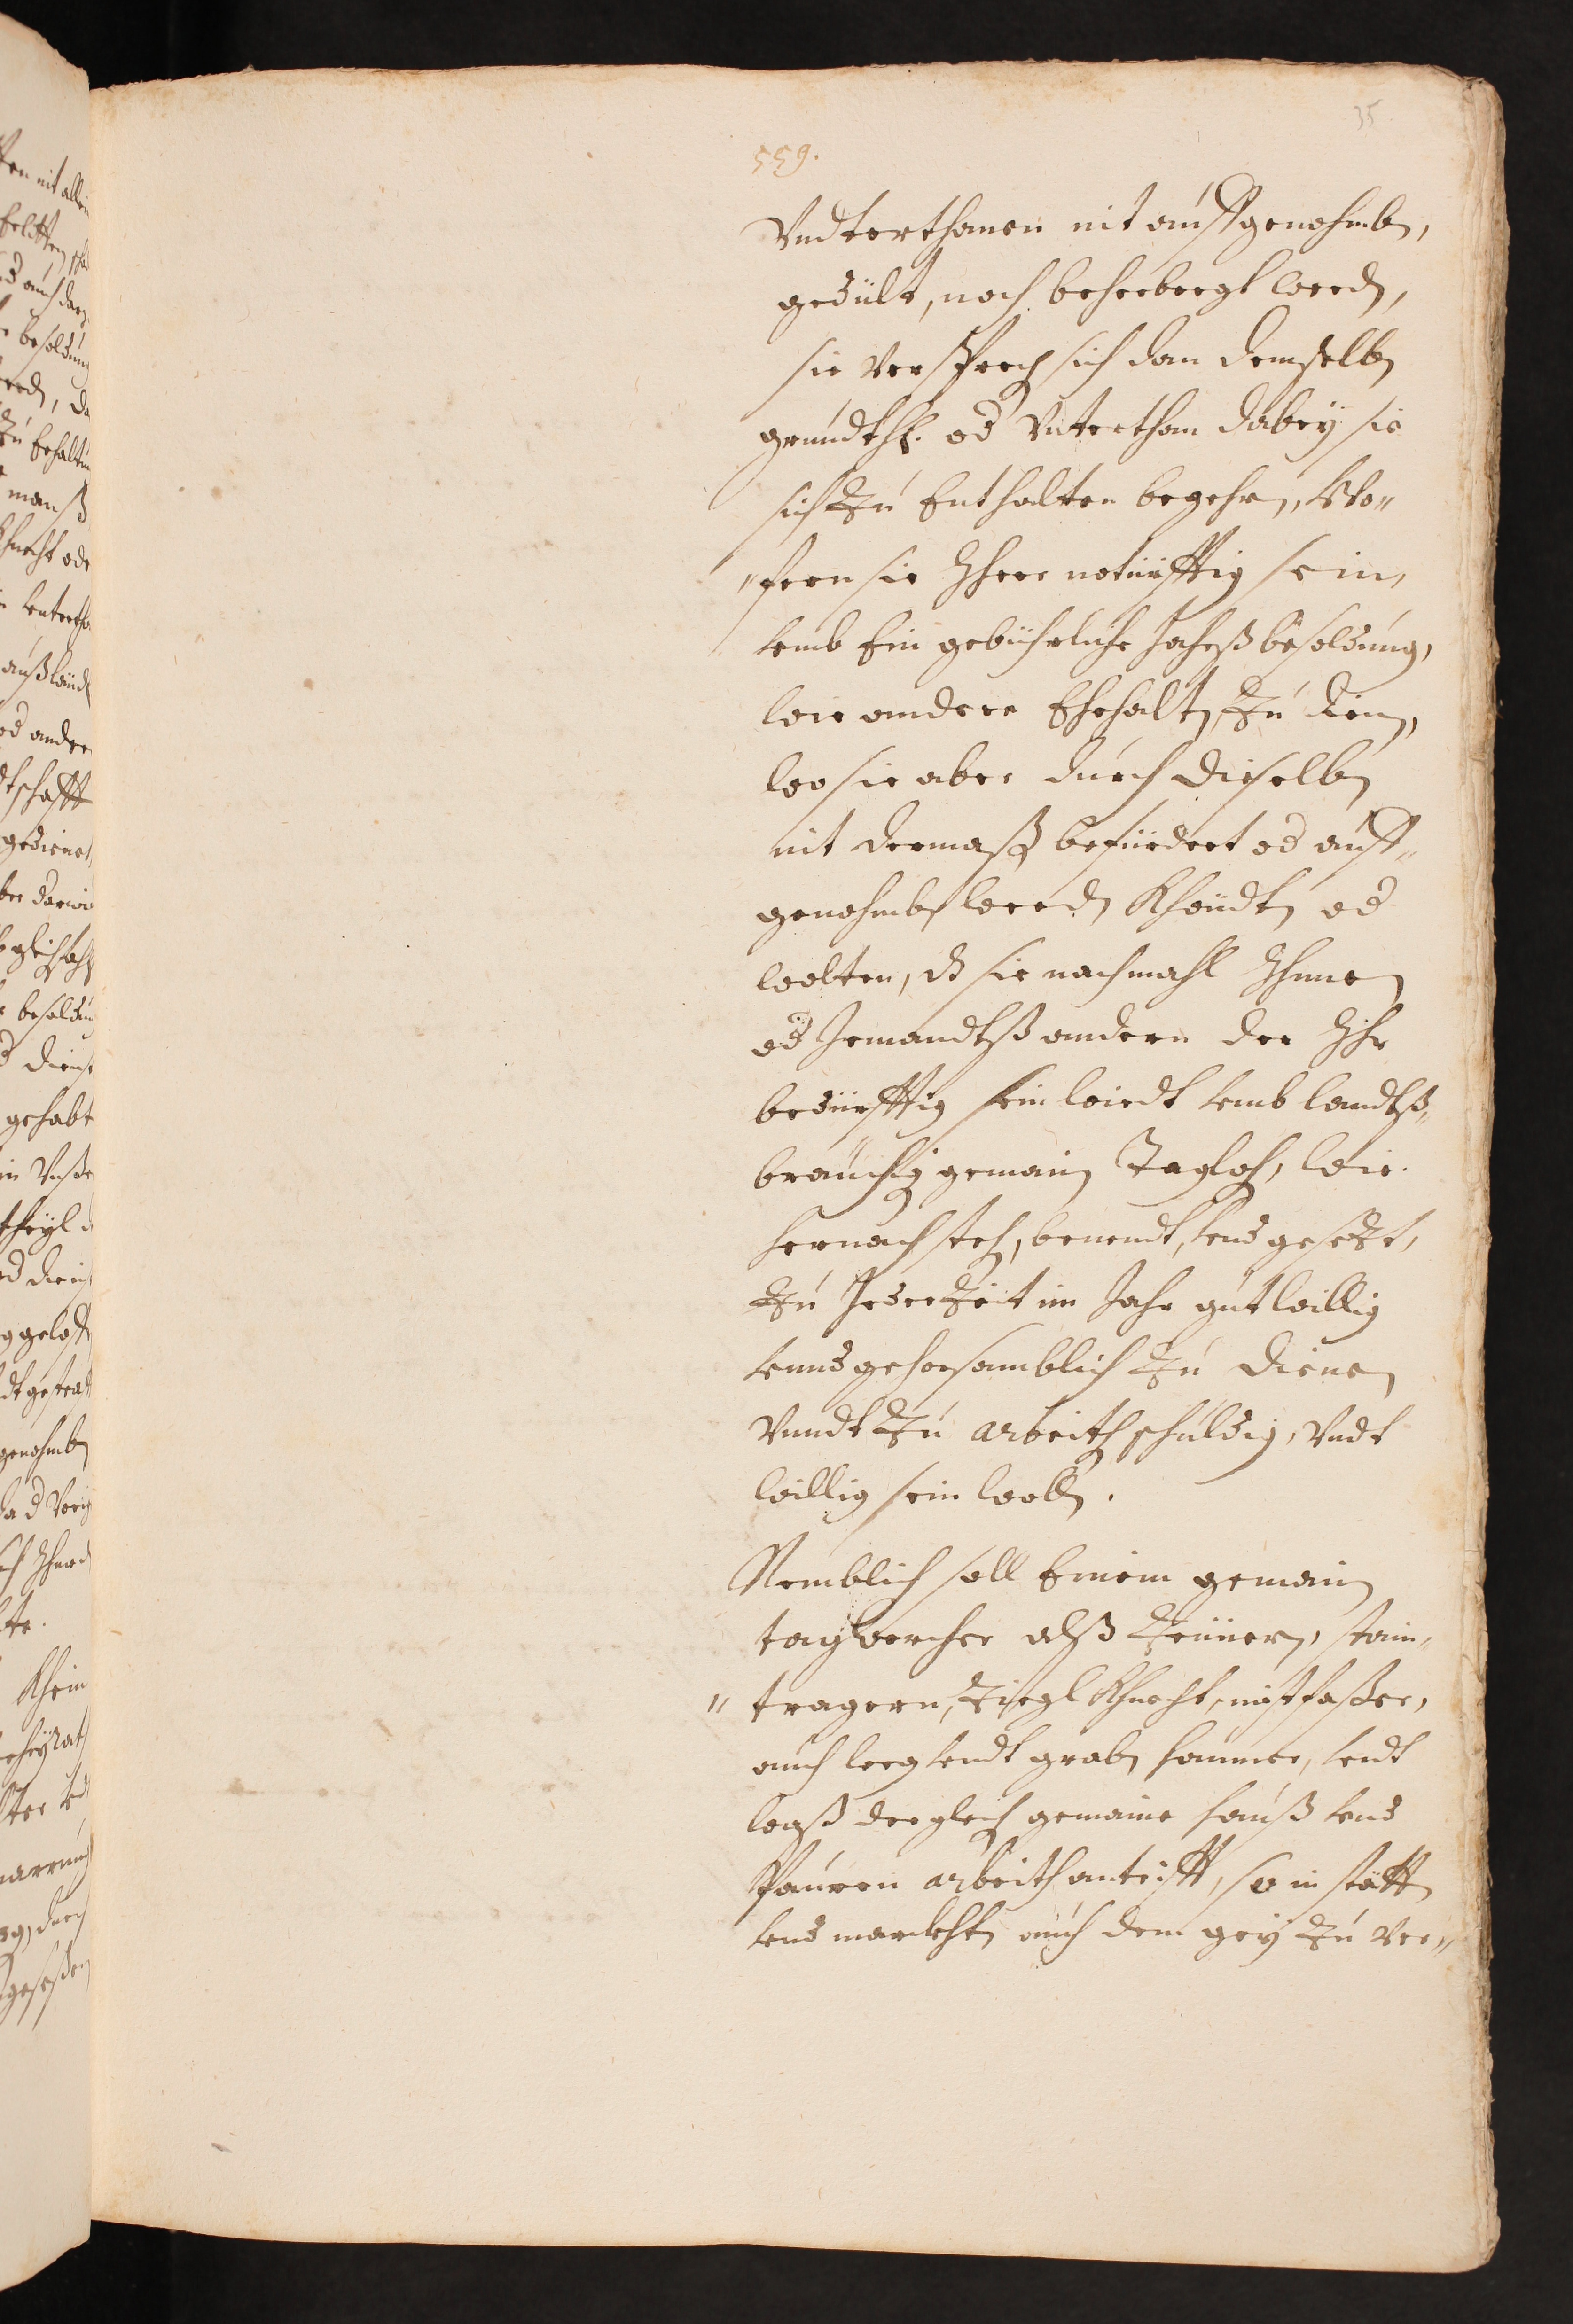 35
559.
Vndterthanen nit auffgenohmben,
gedult, noch beherbergt werden,
sie versprechen sich dan demselben
grundthl. od Vnterthan dabey sie
sich zu Enthalten begehrn, Wo„
„fern sie Jhrer notürfftig sein,
vmb Ein gebührliche Jahrßbesoldung,
wie andere Ehehalten, zu dien,
wo sie aber durch dieselben
nit dermaßen befürdert od auff„
genohmben werden khöndten od
wolten, dz sie nachmahl Jhnen
od Jemandtß andern der Jhr
bedürfftig sein wirdt vmb landtß„
breuchig gemain Taglohn, wie
hernach stehn, benendt, vnd gesezt,
zu Jederzeit im Jahr guetwillig
vnnd gehorsamblich zu dienen
Vnndt zu arbeithen schuldig, Vndt
willig sein wollen.
Nemblich soll Einem gemain
tagwercher alß Zeünern, stain„
„tragern, Ziegl Khnecht, mistfaßer,
auch weg vndt graben raumer, vndt
waß dergleichen gemaine hauß vnd
Pauren arbeith antrifft, so in stätten
vnd marckhten auch dem gey zu ver„